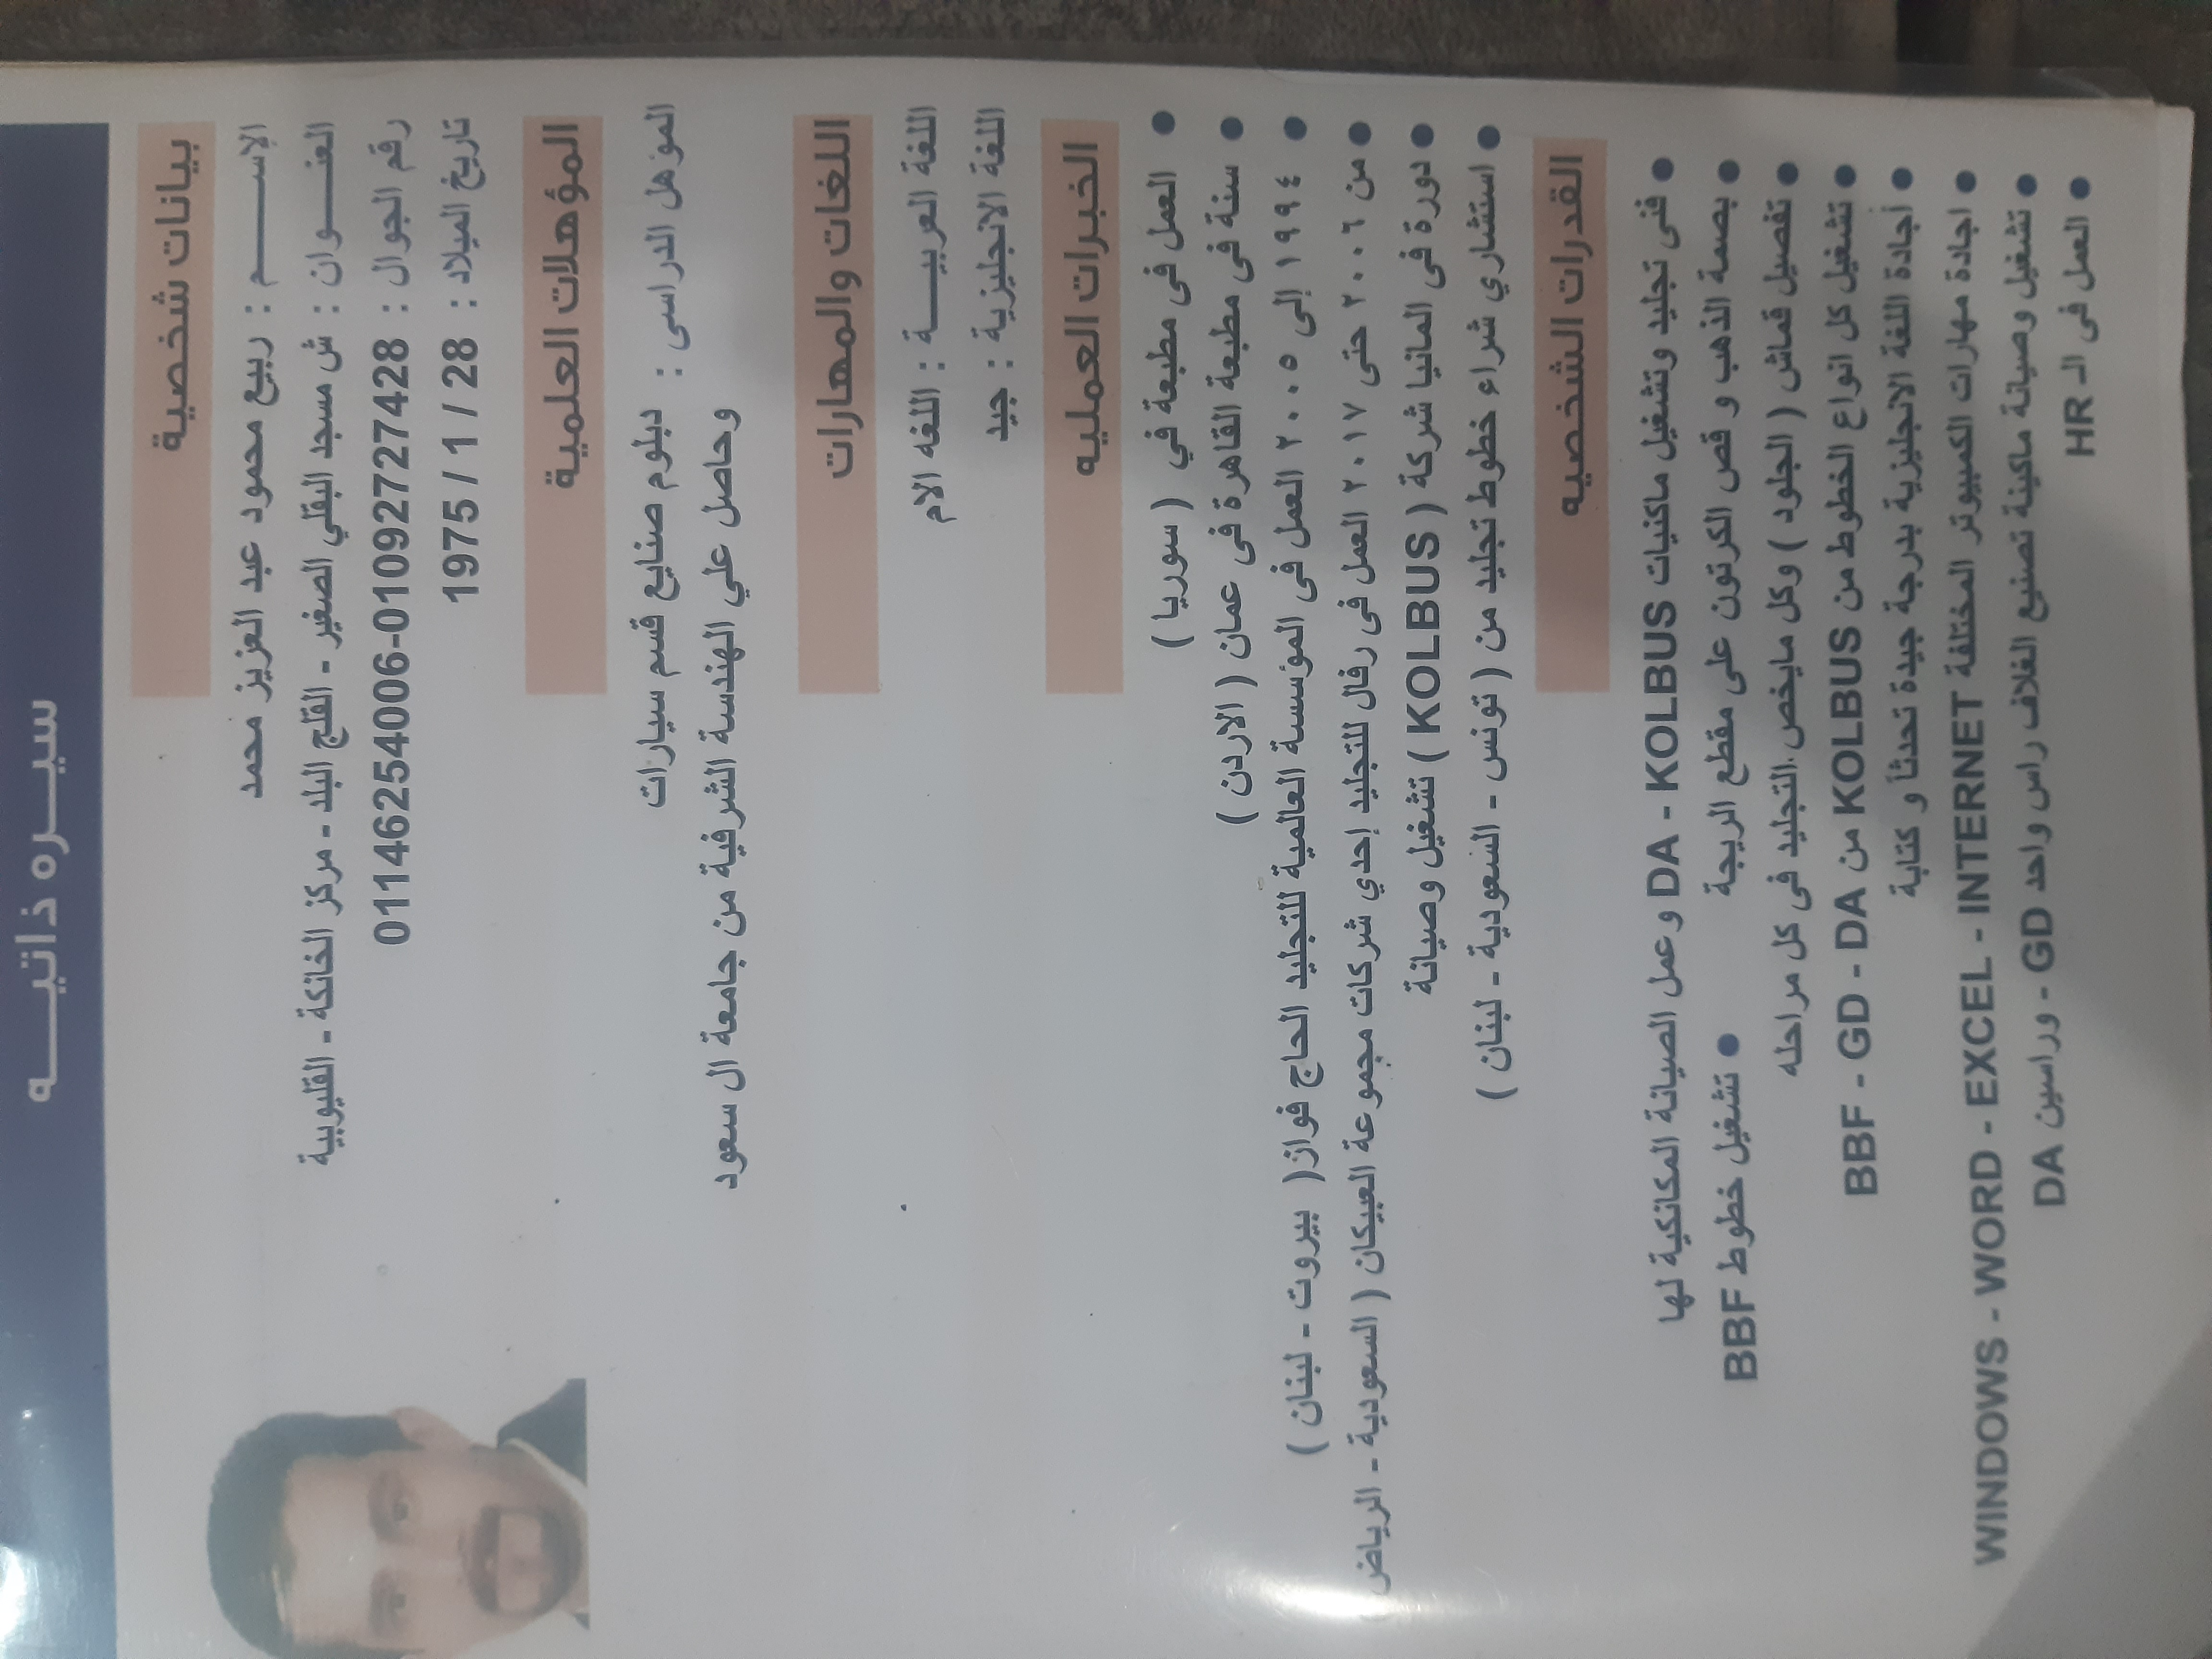 سيـــره ذاتيـــــه
بيانات شخصية
الإســـــــم : ربيع محمود عبد العزيز محمد
العنـــــوان : ش مسجد البقلي الصغير - القلج البلد - مركز الخانكة - القليوبية
رقم الجوال : 01146254006-01092727428
تاريخ الميلاد : 1975 / 1 / 28
المؤهلات العلمية
المؤهل الدراسى : دبلوم صنايع قسم سيارات
وحاصل علي الهندسة الشرفية من جامعة ال سعود
اللغات والمهارات
اللغة العربيـــــة : اللغه الام
اللغة الانجليزية : جيد
الخبرات العمليه
● العمل فى مطبعة في ( سوريا )
● سنة فى مطبعة القاهرة فى عمان ( الاردن )
● ١٩٩٤ إلى ٢٠٠٥ العمل فى المؤسسة العالمية للتجليد الحاج فواز( بيروت - لبنان )
● من ٢٠٠٦ حتى ٢٠١٧ العمل فى رفال للتجليد إحدي شركات مجموعة العبيكان ( السعودية - الرياض
● دورة فى المانيا شركة ( KOLBUS ) تشغيل وصيانة
● استشاري شراء خطوط تجليد من ( تونس - السعودية - لبنان )
القدرات الشخصيه
● فنى تجليد وتشغيل ماكنيات DA - KOLBUS وعمل الصيانة المكانكية لها
● بصمة الذهب و قص الكرتون على مقطع الريجة ● تشغيل خطوط BBF
● تفصيل قماش ( الجلود ) وكل مايخص.التجليد فى كل مراحله
● تشغيل كل انواع الخطوط من KOLBUS من BBF - GD - DA
● أجادة اللغة الانجليزية بدرجة جيدة تحدثاً و كتابة
● اجادة مهارات الكمبيوتر المختلفة WINDOWS - WORD - EXCEL - INTERNET
● تشغيل وصيانة ماكينة تصنيع الغلاف راس واحد GD - وراسين DA
● العمل فى الـ HR